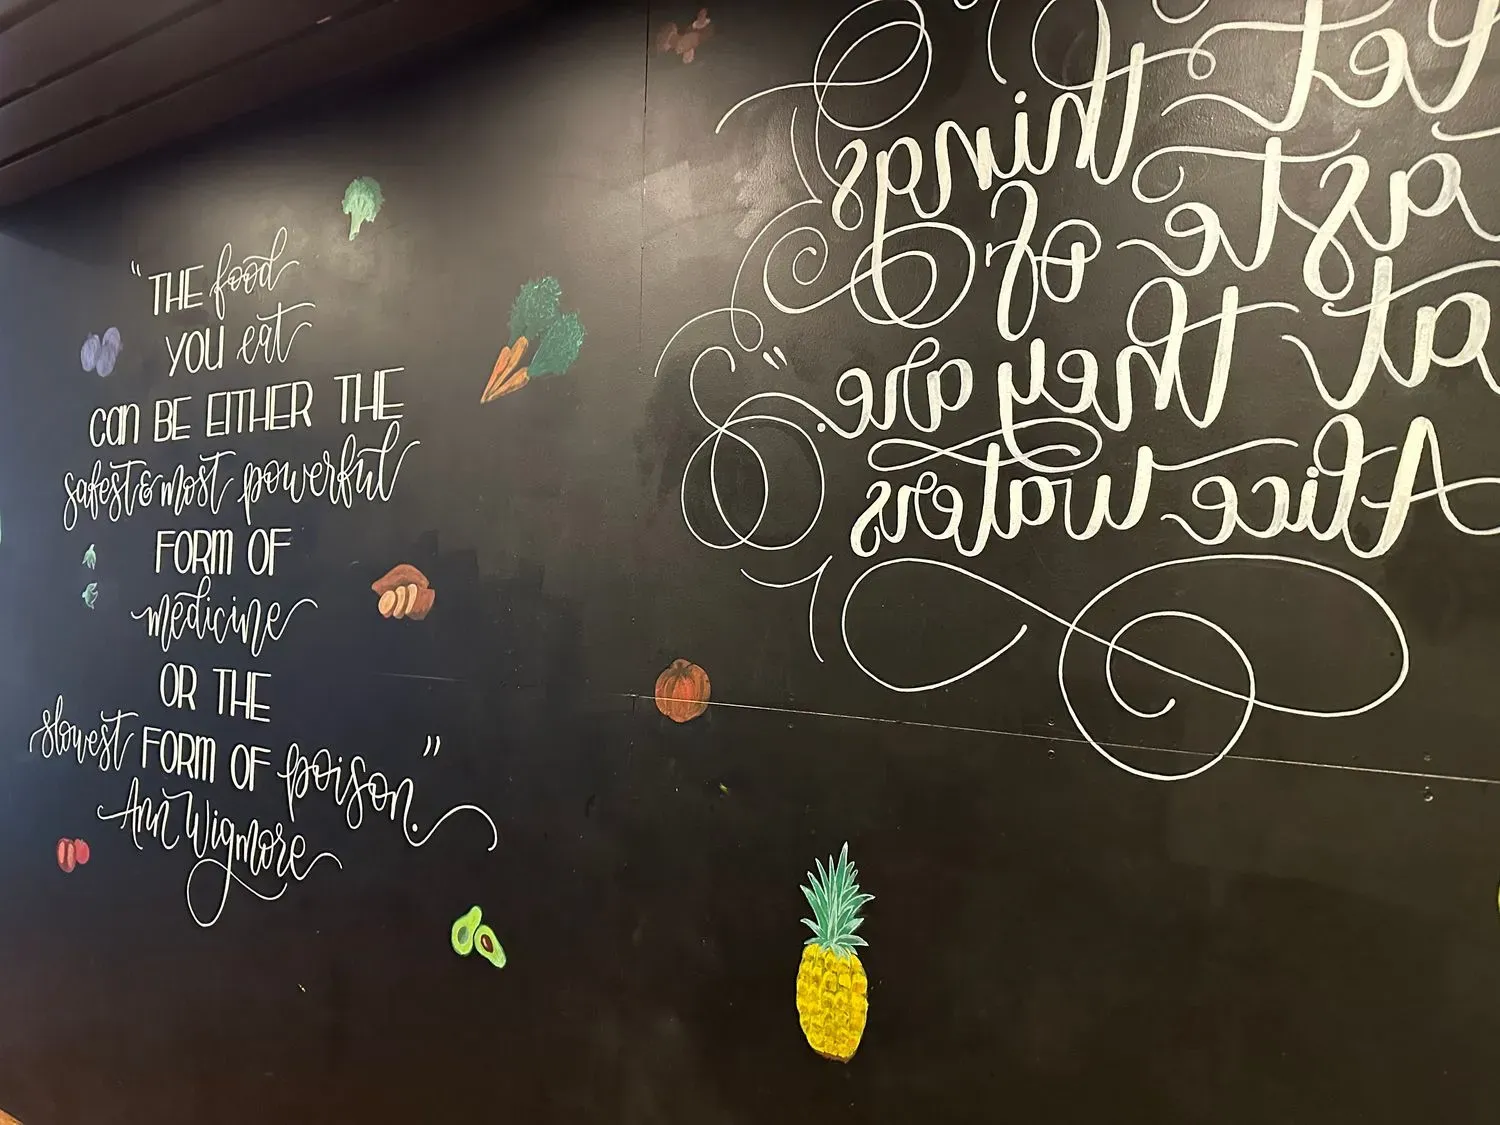 "THE food
YOU eat
can BE EITHER THE
safest & most powerful
FORM OF
medicine
OR THE
slowest FORM OF poison."
Ann Wigmore
Let things
taste of
at they are."
Alice Waters